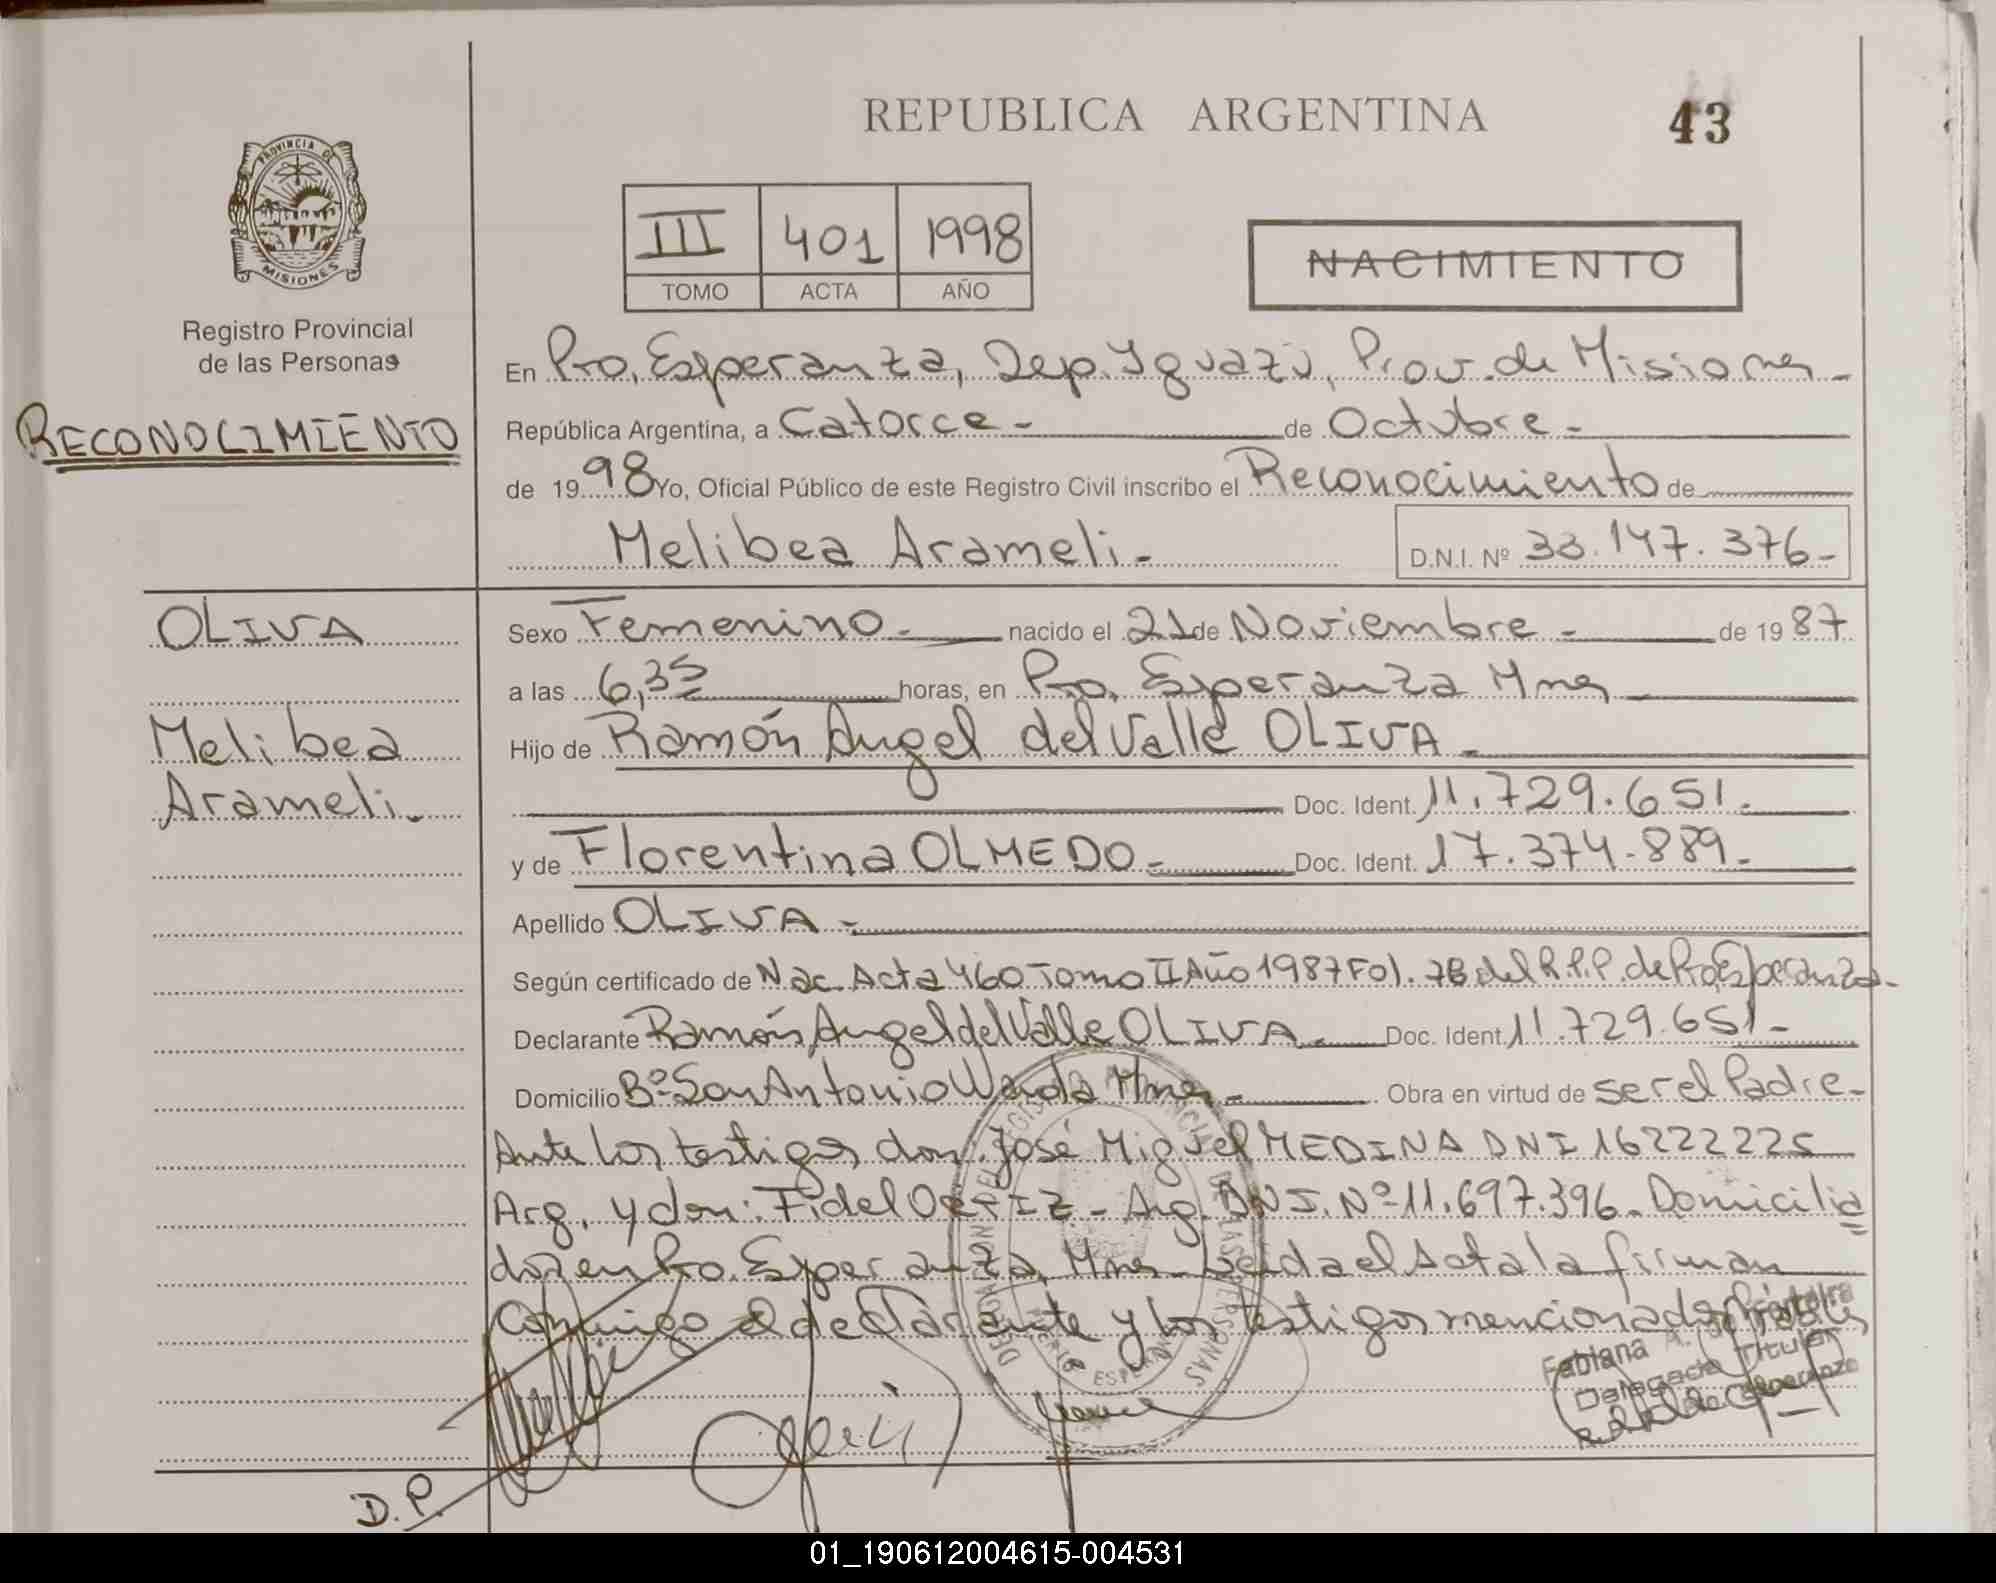 REPUBLICA ARGENTINA
43
PROVINCIA DE
MISIONES
Registro Provincial
de las Personas
RECONOCIMIENTO
III 401 1998
TOMO ACTA AÑO
NACIMIENTO
En Pto. Esperanza, Dep. Iguazú, Prov. de Misiones -
República Argentina, a Catorce - de Octubre -
de 1998 Yo, Oficial Público de este Registro Civil inscribo el Reconocimiento de
Melibea Arameli - D.N.I. Nº 33.147.376-
OLIVA
Melibea
Arameli.
Sexo Femenino - nacido el 21 de Noviembre - de 1987
a las 6,35 horas, en Pto. Esperanza Mnes
Hijo de Ramón Angel del Valle OLIVA -
Doc. Ident. 11.729.651.
y de Florentina OLMEDO - Doc. Ident. 17.374.889-
Apellido OLIVA -
Según certificado de Nac. Acta 460 Tomo II Año 1987 Fol. 78 del R.P.P. de Pto. Esperanza-
Declarante Ramón Angel del Valle OLIVA. Doc. Ident. 11.729.651-
Domicilio Bº San Antonio Wanda Mnes - Obra en virtud de ser el Padre-
Ante los testigos don: José Miguel MEDINA DNI 16222225
Arg. y don: Fidel ORTIZ - Arg. DNI. Nº 11.697.396. Domicilia
dos en Pto. Esperanza, Mnes Leida el Acta la firman
Conmigo el declarante y los testigos mencionados
Fabiana A.
Delegada Titular
D.P.
01_190612004615-004531